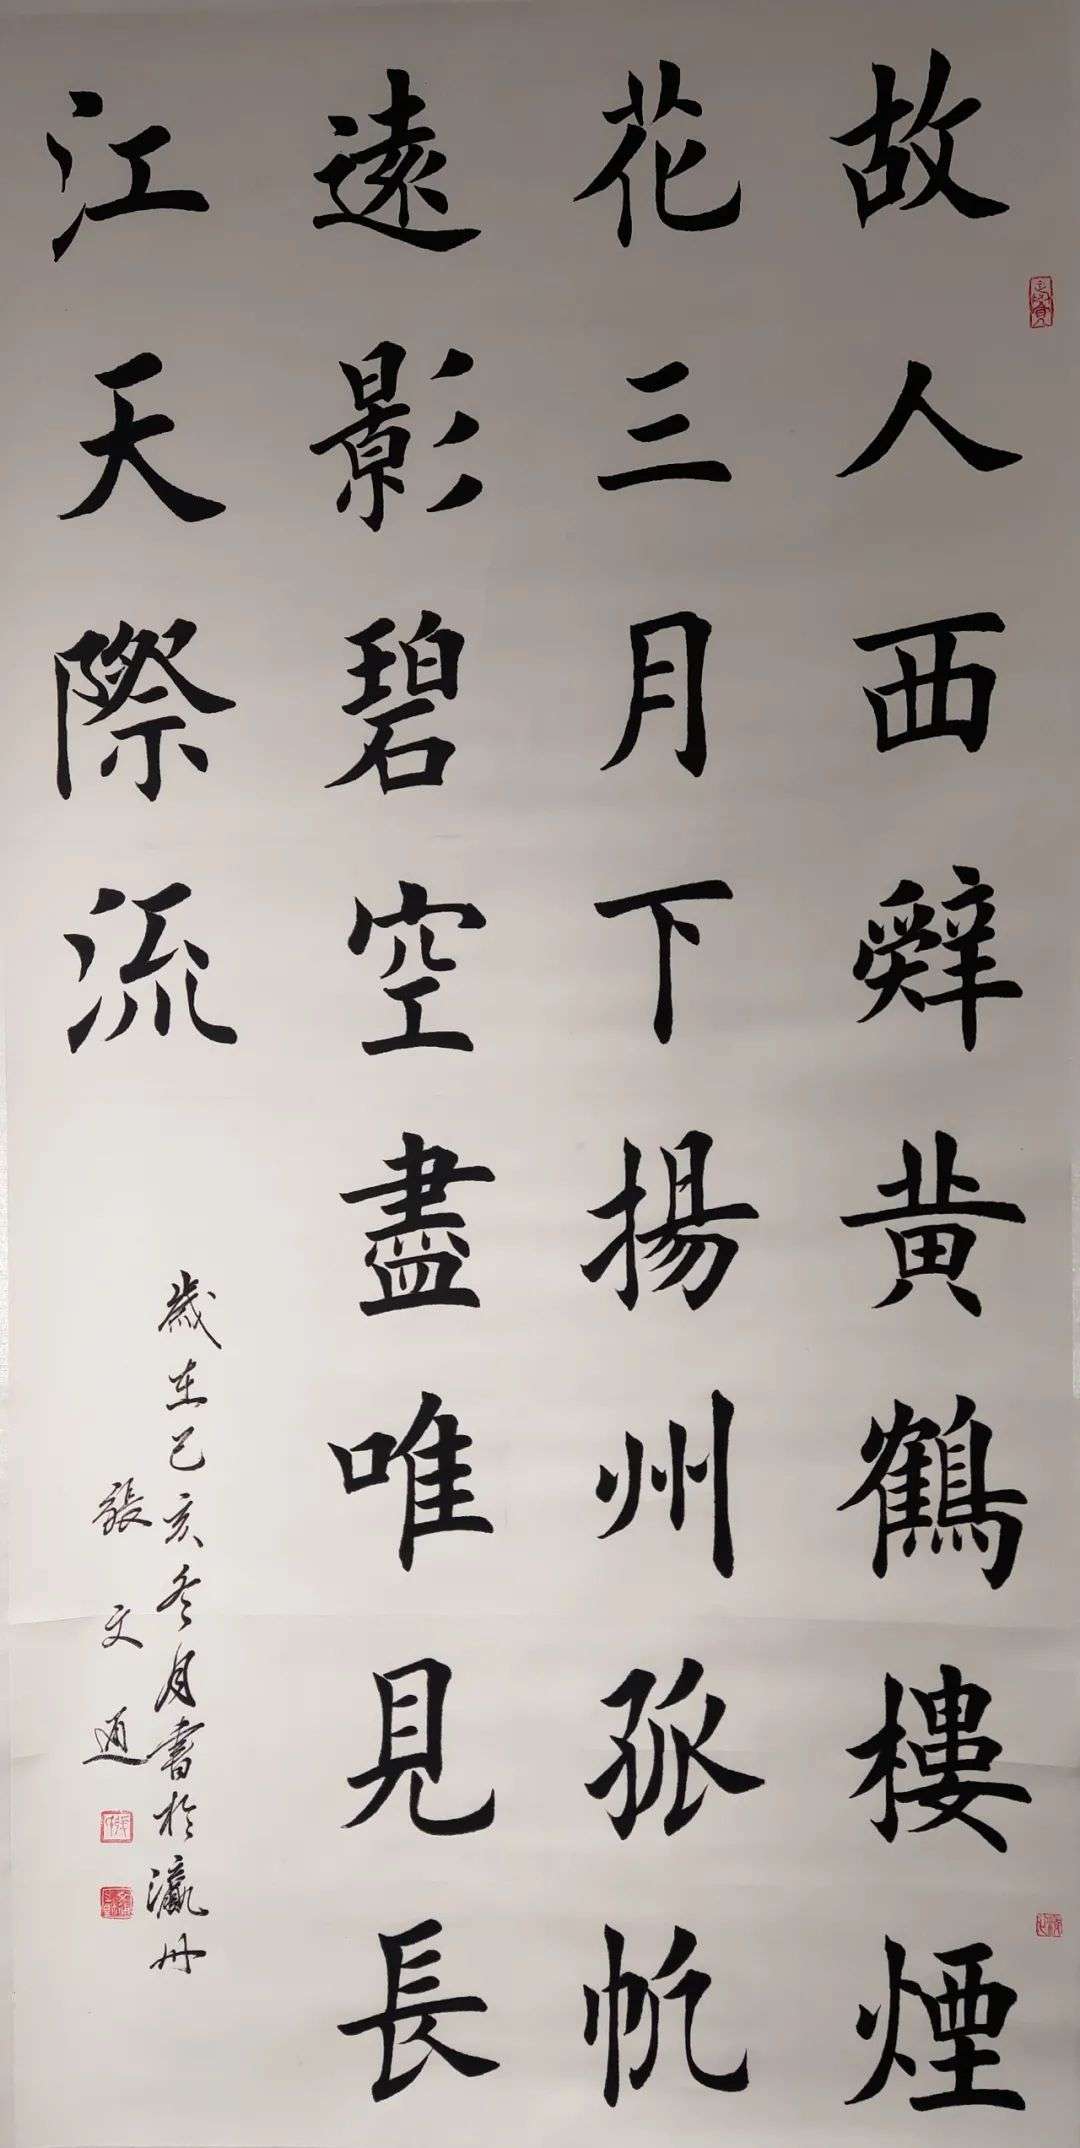 故人西辤黄鶴樓煙
花三月下揚州孤帆
遠影碧空盡唯見長
江天際流
歲在己亥冬月書於瀛州
張文通